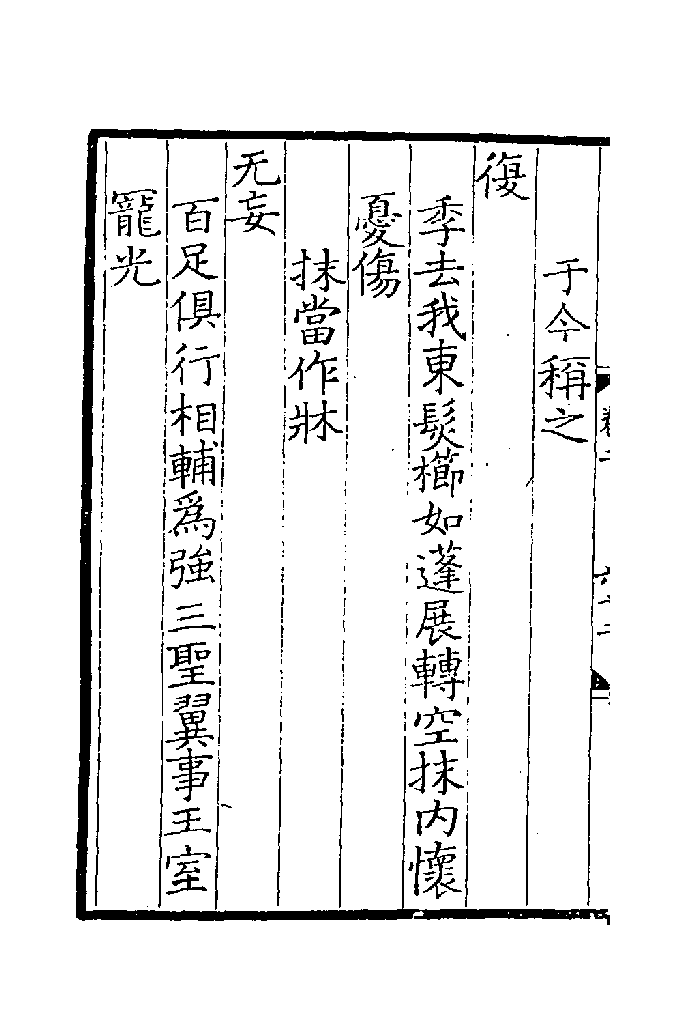 于今稱之
復
季去我東髮櫛如蓬展轉空抹内懷
憂傷
抹當作牀
无妄
百足俱行相輔爲強三聖翼事王室
寵光